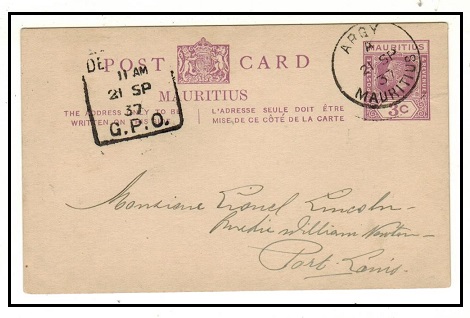 POST CARD
MAURITIUS
THE ADDRESS ONLY TO BE WRITTEN ON THIS
L'ADRESSE SEULE DOIT ÊTRE
MISE DE CE CÔTÉ DE LA CARTE
DE
11 AM
21 SP
37
G.P.O.
ARGY
A
21 SP
37
MAURITIUS
MAURITIUS
3C
Monsieur Lionel Lincoln
William Newton
Port Louis